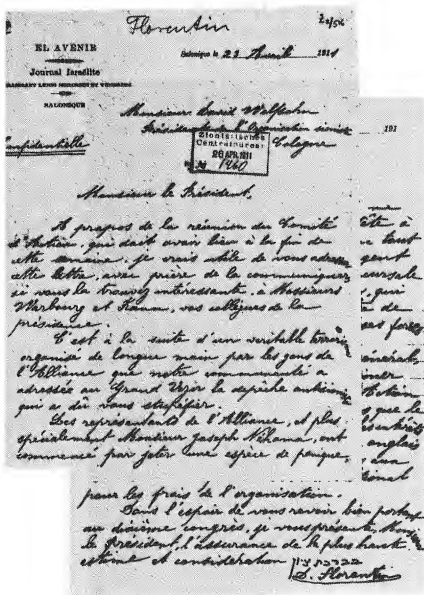 Florentin
EL AVENIR
Journal Israélite
PARAISSANT LUNDI MERCREDI ET VENDREDI
SALONIQUE
Salonique le 23 Avril 1911
Confidentielle
Monsieur David Wolfsohn
Président de l'Organisation sioniste
Cologne
Zionistisches
Centralbureau
26 APR. 1911
No 1260
Monsieur le Président,
A propos de la réunion du Comité
d'Action, qui doit avoir lieu à la fin de
cette semaine, je crois utile de vous adresser
cette lettre, avec prière de la communiquer,
si vous la trouvez intéressante, à Messieurs
Warbourg et Kann, vos collègues de la
présidence.
C'est à la suite d'un veritable terrorisme
organisé de longue main par les gens de
l'Alliance que notre communauté a
adressée au Grand Vizir la depêche antisioniste
qui a dû vous stupéfier.
Des représentants de l'Alliance, et plus
spécialement Monsieur Joseph Nehama, ont
commencé par jeter une espèce de panique,
191
tête à
tant
gent
cursale
qui
de
ses forces
Action
que le
anglais
aux
pour les frais de l'organisation.
Dans l'espoir de vous revoir bien portant
au dixième congrès, je vous présente, Monsieur
le Président, l'assurance de la plus haute
estime et considération
בברכת ציון
D. Florentin